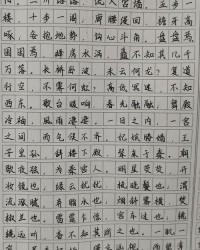 入宫墙。五步一
楼，十步一阁；廊腰缦回，檐牙高
啄；各抱地势，钩心斗角。盘盘焉，
囷囷焉，蜂房水涡，矗不知其几千
万落。长桥卧波，未云何龙？复道
行空，不霁何虹？高低冥迷，不知
西东。歌台暖响，春光融融；舞殿
冷袖，风雨凄凄。一日之内，一宫
之间，而气候不齐。妃嫔媵嫱，王
子皇孙，辞楼下殿，辇来于秦，朝
歌夜弦，为秦宫人。明星荧荧，开
妆镜也；绿云扰扰，梳晓鬟也；渭
流涨腻，弃脂水也；烟斜雾横，焚
椒兰也。雷霆乍惊，宫车过也；辘
辘远听，杳不知其所之也。一